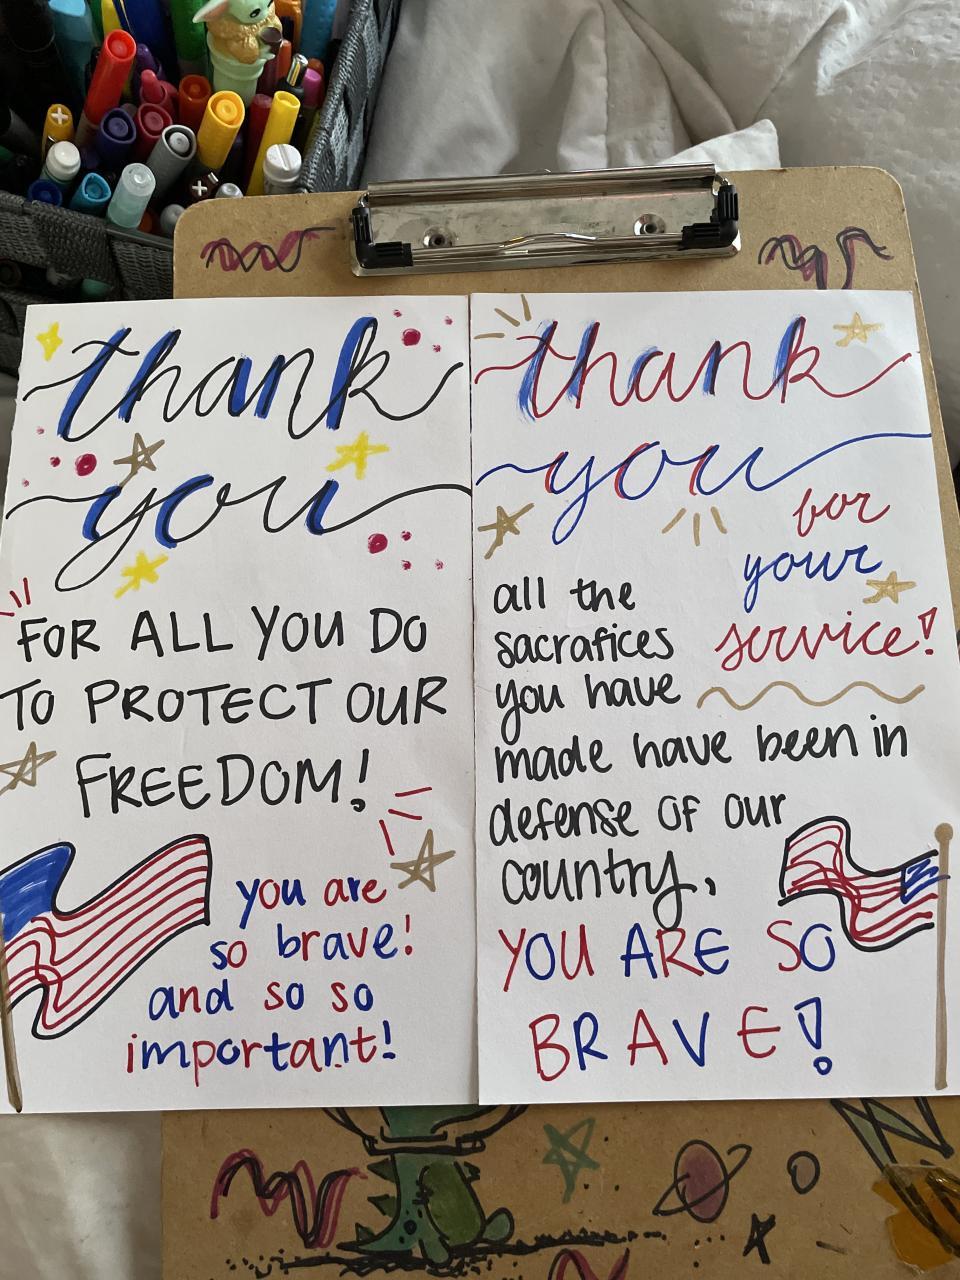 thank
you
FOR ALL YOU DO
TO PROTECT OUR
FREEDOM!
you are
so brave!
and so so
important!
thank
you
for
your
service!
all the
sacrafices
you have
made have been in
defense of our
country.
YOU ARE SO
BRAVE!